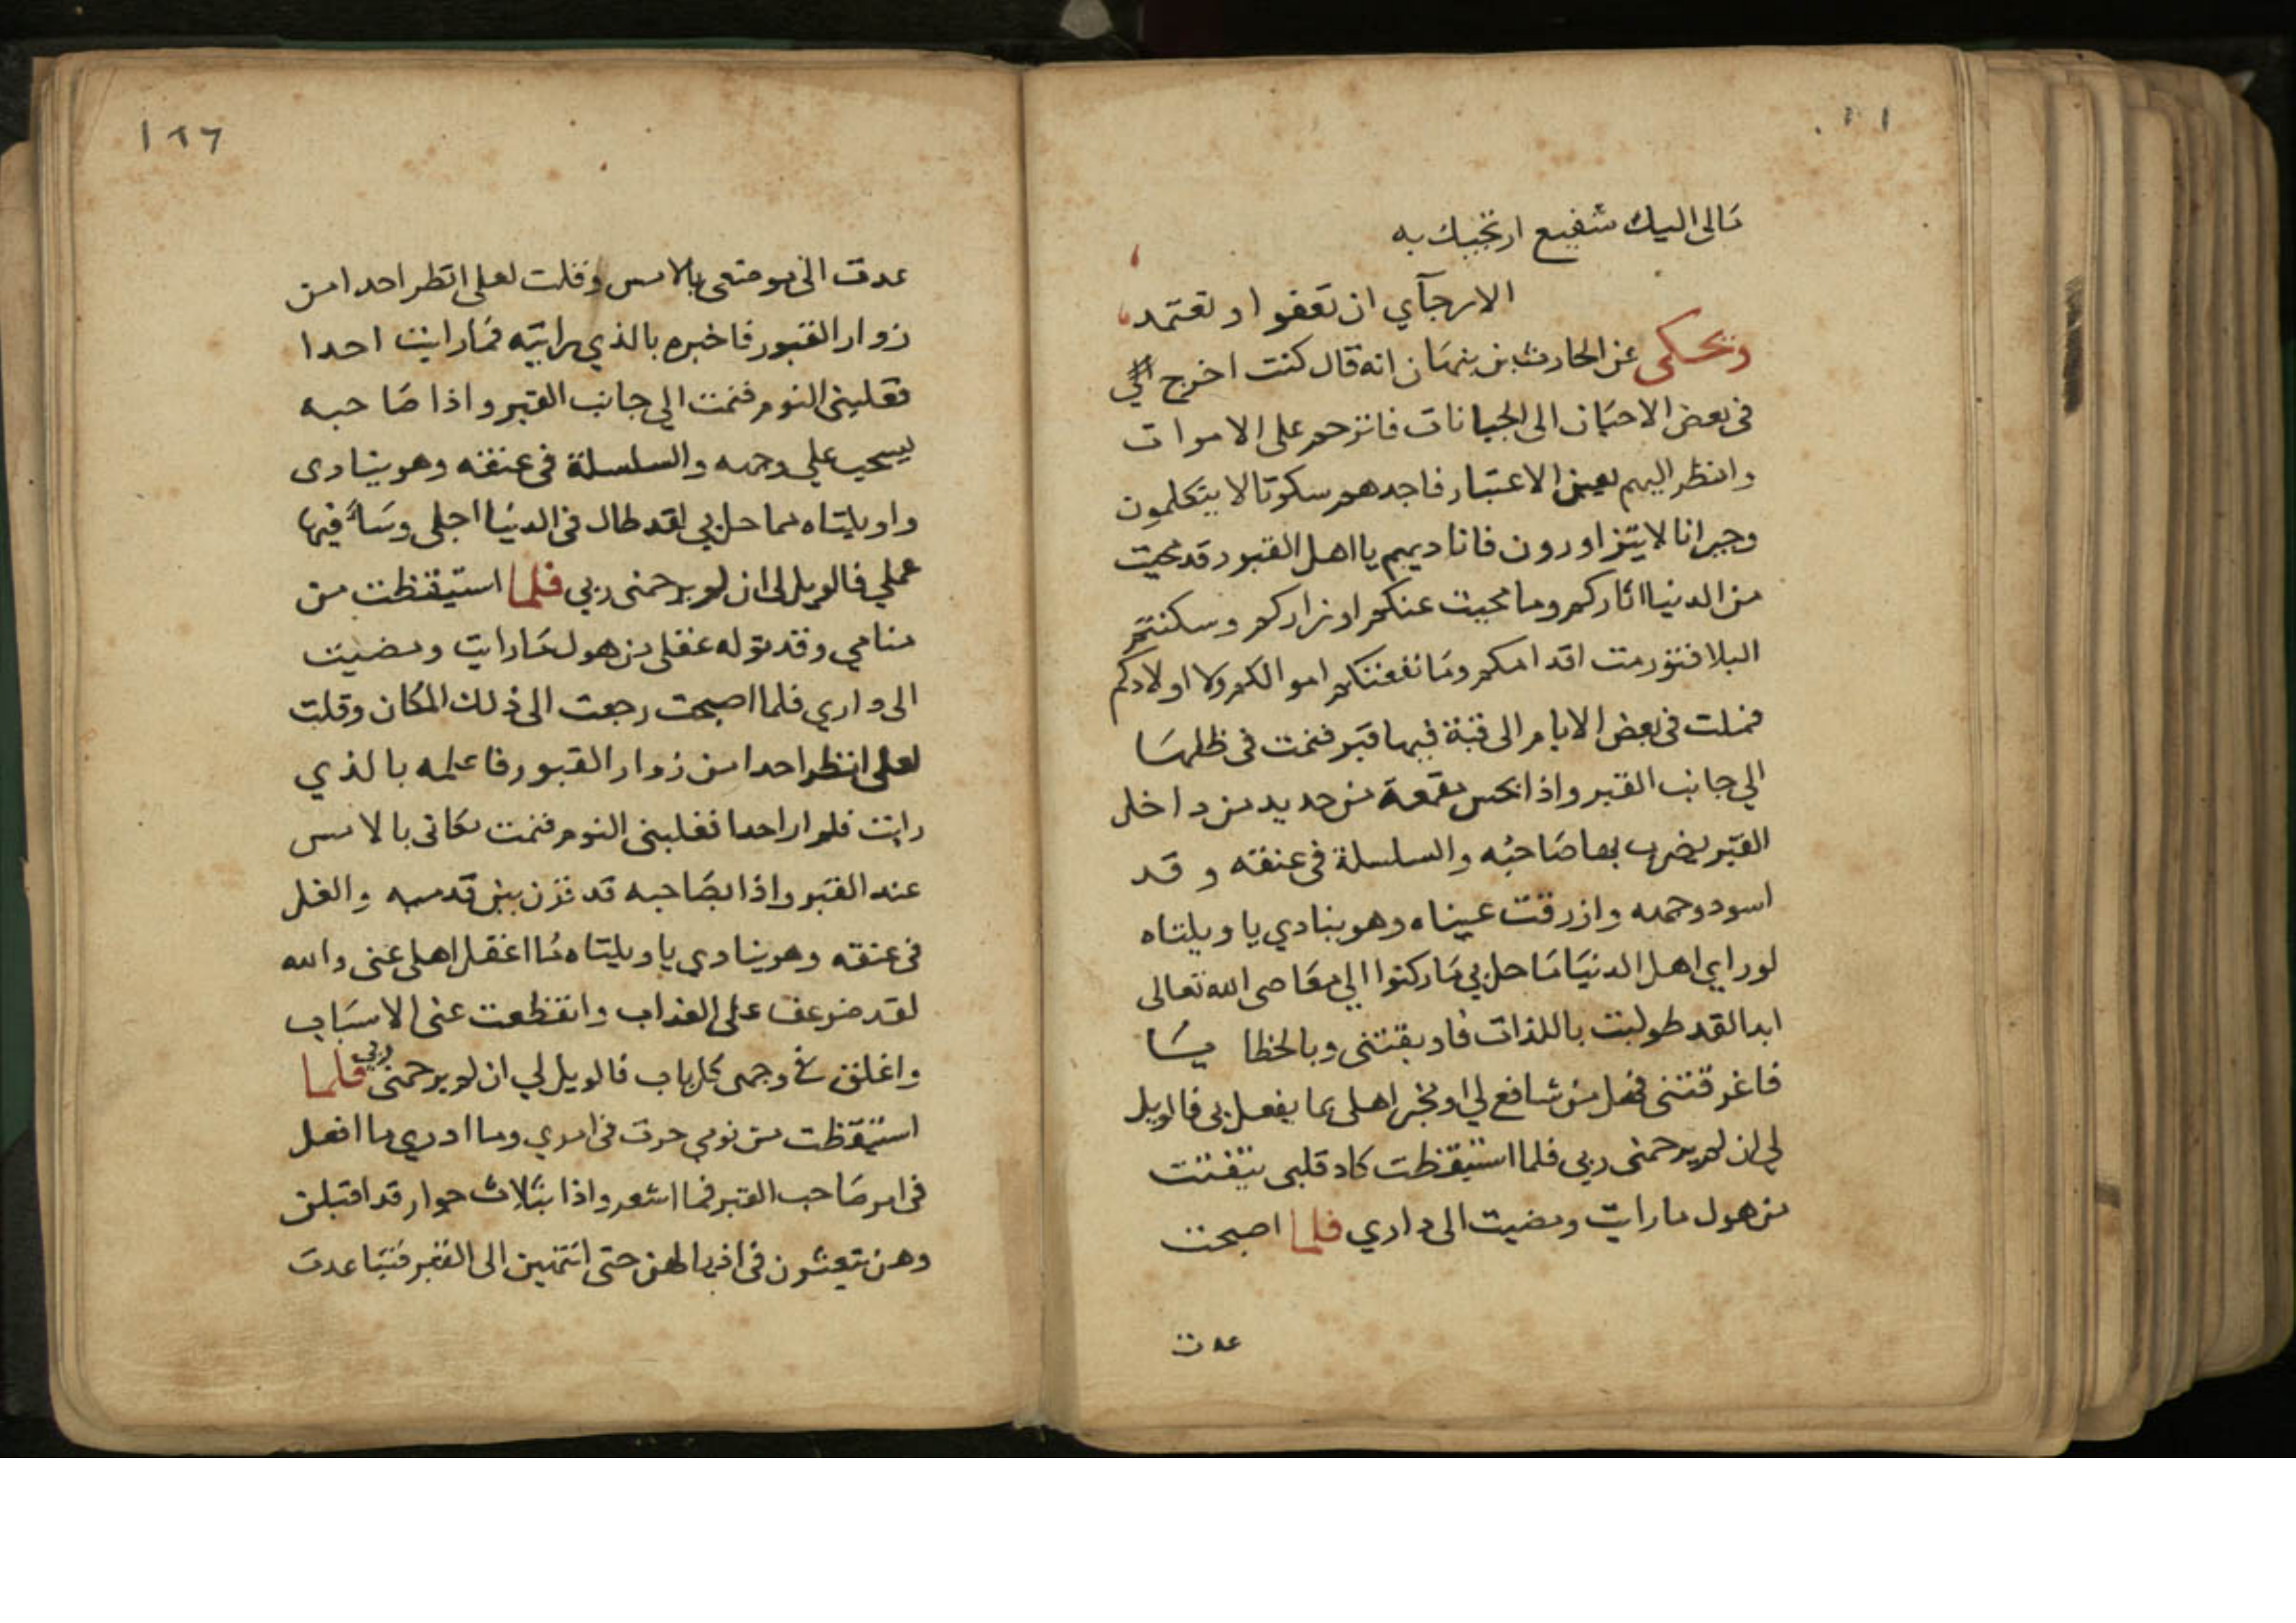 مالى اليك شفيع ارتجيك به
الا رجآي ان تعفو او تعتمد
ويحكى عن الحارث بن نبهان انه قال كنت اخرج
فى بعض الاحيان الى الجبانات فاترحم على الاموات
وانظر اليهم بعين الاعتبار فاجدهم سكوتا لا يتكلمون
وجيرانا لا يتزاورون فاناديهم يا اهل القبور قد محيت
من الدنيا اثاركم وما محيت عنكم اوزاركم وسكنتم
البلا فتورمت اقدامكم وما نفعتكم اموالكم ولا اولادكم
فملت فى بعض الايام الى قبة فيها قبر فنمت فى ظلها
الي جانب القبر واذا بحس مقمعة من حديد من داخل
القبر يضرب بها صاحبه والسلسلة فى عنقه وقد
اسود وجهه وازرقت عيناه وهو ينادي يا ويلتاه
لو راي اهل الدنيا ما حل بي ما ركنوا الي معاصى الله تعالى
ابدا لقد طولبت باللذات فاوبقتنى وبالخطايا
فاغرقتنى فهل من شافع لي او مخبر اهلى بما يفعل بى فالويل
لي ان لم يرحمنى ربى فلما استيقظت كاد قلبى يتفتت
من هول ما رايت ومضيت الى داري فلما اصبحت
عدت
١٦٦
عدت الى موضعى بالامس وقلت لعلى انظر احدا من
زوار القبور فاخبره بالذي رايته فما رايت احدا
فغلبنى النوم فنمت الي جانب القبر واذا صاحبه
يسحب علي وجهه والسلسلة فى عنقه وهو ينادى
واويلتاه مما حل بي لقد طال فى الدنيا اجلى وساء فيها
عملي فالويل لى ان لم يرحمنى ربي فلما استيقظت من
منامي وقد توله عقلى من هول ما رايت ومضيت
الى داري فلما اصبحت رجعت الى ذلك المكان وقلت
لعلى انظر احدا من زوار القبور فاعلمه بالذي
رايت فلم ار احدا فغلبنى النوم فنمت مكانى بالامس
عند القبر واذا بصاحبه قد قرن بين قدميه والغل
فى عنقه وهو ينادى يا ويلتاه ما اغفل اهلى عنى والله
لقد ضوعف على العذاب وانقطعت عنى الاسباب
واغلق فى وجهى كل باب فالويل لي ان لم يرحمنى ربى فلما
استيقظت من نومي حرت فى امري وما ادري ما افعل
فى امر صاحب القبر فما اشعر واذا بثلاث جوار قد اقبلن
وهن يتعثرن فى اذيالهن حتى انتهين الى القبر فتباعدت